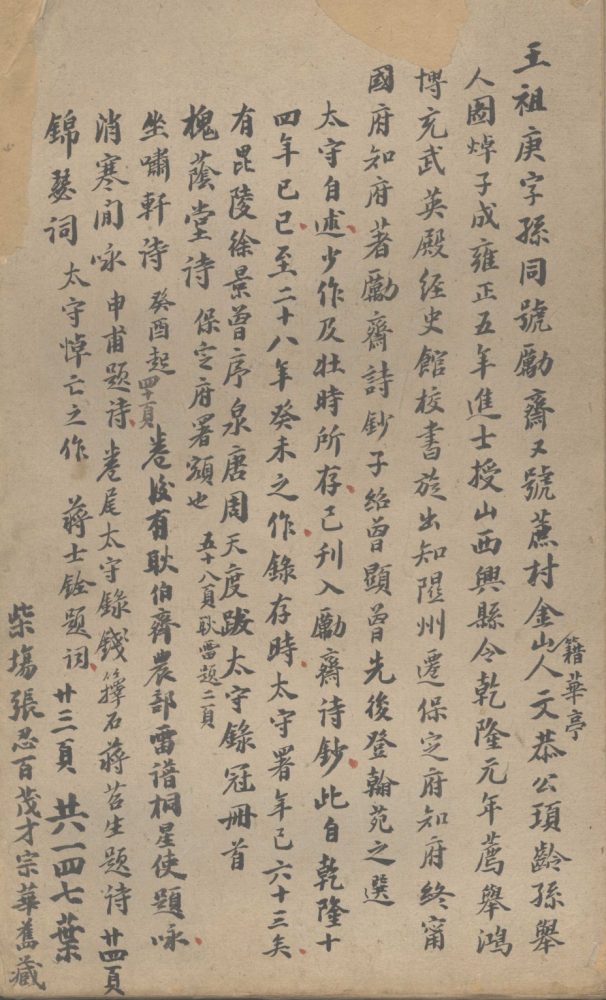 王祖庚字孫同號勵齋又號蔗村金山籍華亭人文恭公頊齡孫舉
人圖焯子成雍正五年進士授山西興縣令乾隆元年薦舉鴻
博充武英殿經史館校書旋出知隰州遷保定府知府終甯
國府知府著勵齋詩鈔子紹曾顯曾先後登翰苑之選
太守自述少作及壯時所存已刊入勵齋詩鈔此自乾隆十
四年己巳至二十八年癸未之作錄存時太守署年已六十三矣
有毘陵徐景曾序泉唐周天度跋太守錄冠冊首
槐蔭堂詩 保定府署額也 五十八頁耿雷題二頁
坐嘯軒詩 癸酉起 四十頁 卷後有耿伯齊農部雷譜桐星使題咏
消寒閒咏 申甫題詩 卷尾太守錄錢籜石蔣苕生題詩 廿四頁
錦瑟词 太守悼亡之作 蔣士銓題词 廿三頁 共一四七葉
柴塲張忍百茂才宗華舊藏